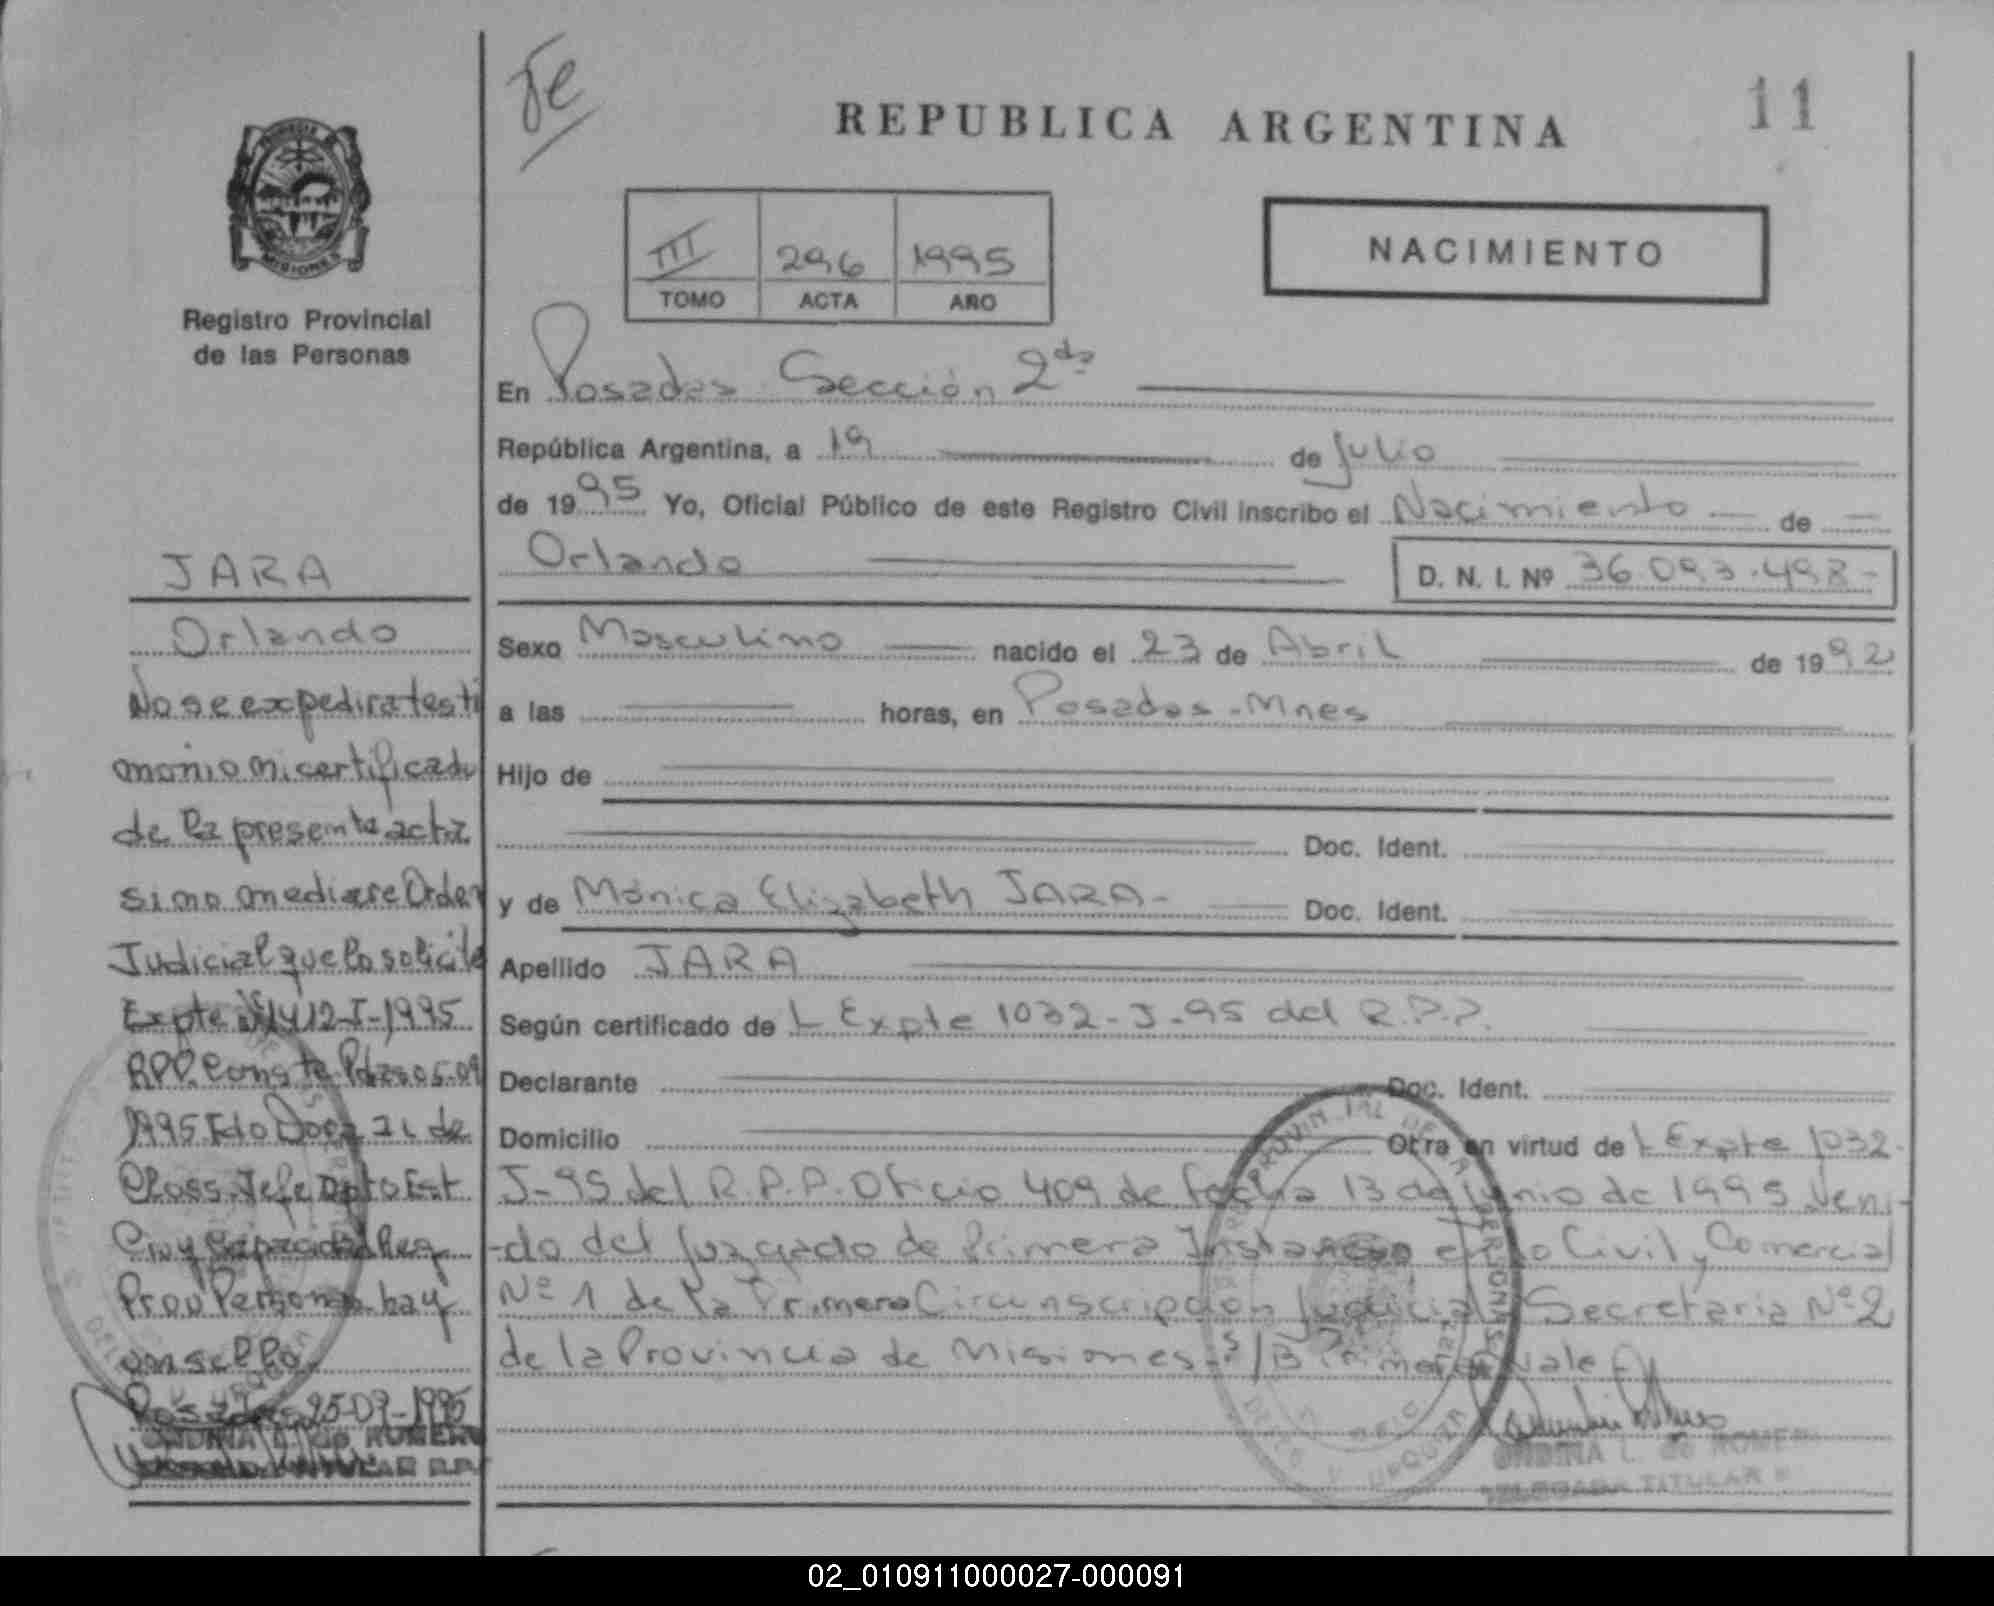 Je
REPUBLICA ARGENTINA
11
MISIONES
Registro Provincial
de las Personas
III 296 1995
TOMO ACTA AÑO
NACIMIENTO
En Posadas Sección 2da
República Argentina, a 19 de Julio
de 1995 Yo, Oficial Público de este Registro Civil inscribo el Nacimiento de
Orlando D. N. I. Nº 36.093.498-
Sexo Masculino nacido el 23 de Abril de 1992
a las horas, en Posadas - Mnes
Hijo de
Doc. Ident.
y de Mónica Elizabeth JARA- Doc. Ident.
Apellido JARA
Según certificado de L Expte 1032-J-95 del R.P.P.
Declarante Doc. Ident.
Domicilio Otra en virtud de L Expte 1032-
J-95 del R.P.P. Oficio 409 de fecha 13 de Junio de 1995 veni-
-do del Juzgado de Primera Instancia en lo Civil y Comercial
Nº 1 de la Primera Circunscripción Judicial Secretaria Nº 2
de la Provincia de Misiones. Vale
ONDINA L. de ROMERO
DELEGADA TITULAR
JARA
Orlando
No se expedira testi
monio ni certificado
de la presente acta
si no mediare Orden
Judicial que lo solicite
Expte 1412-J-1995
RPP. Conste Pdas 05-09
1995 Fdo de
Jefe Dpto Est
Civ y Capacidad Reg
Prov Personas hay
un sello
Posadas 25-09-1995
02_010911000027-000091